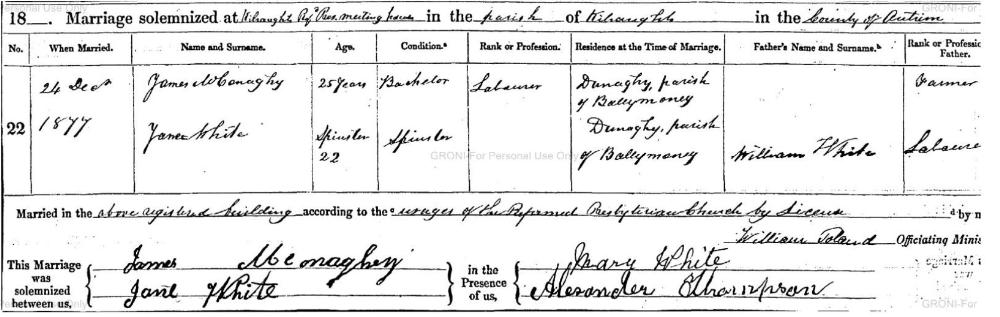 18___. Marriage solemnized at Kilraughts Ref. Pres. meeting house in the parish of Kilraughts in the County of Antrim
No. When Married. Name and Surname. Age. Condition. Rank or Profession. Residence at the Time of Marriage. Father's Name and Surname. Rank or Professio Father.
24 Dec James McConaghy 25 Years Bachelor Labourer Dunaghy, parish of Ballymoney Farmer
22 1877 Jane White Spinster 22 Spinster Dunaghy, parish of Ballymoney William White Laboure
GRONI-For Personal Use Only
Married in the above registered building according to the usages of the Reformed Presbyterian Church by License d by m
William Toland Officiating Minis
This Marriage was solemnized between us, James McConaghey in the Presence of us, Mary White
Jane White Alexander Thompson
GRONI-For